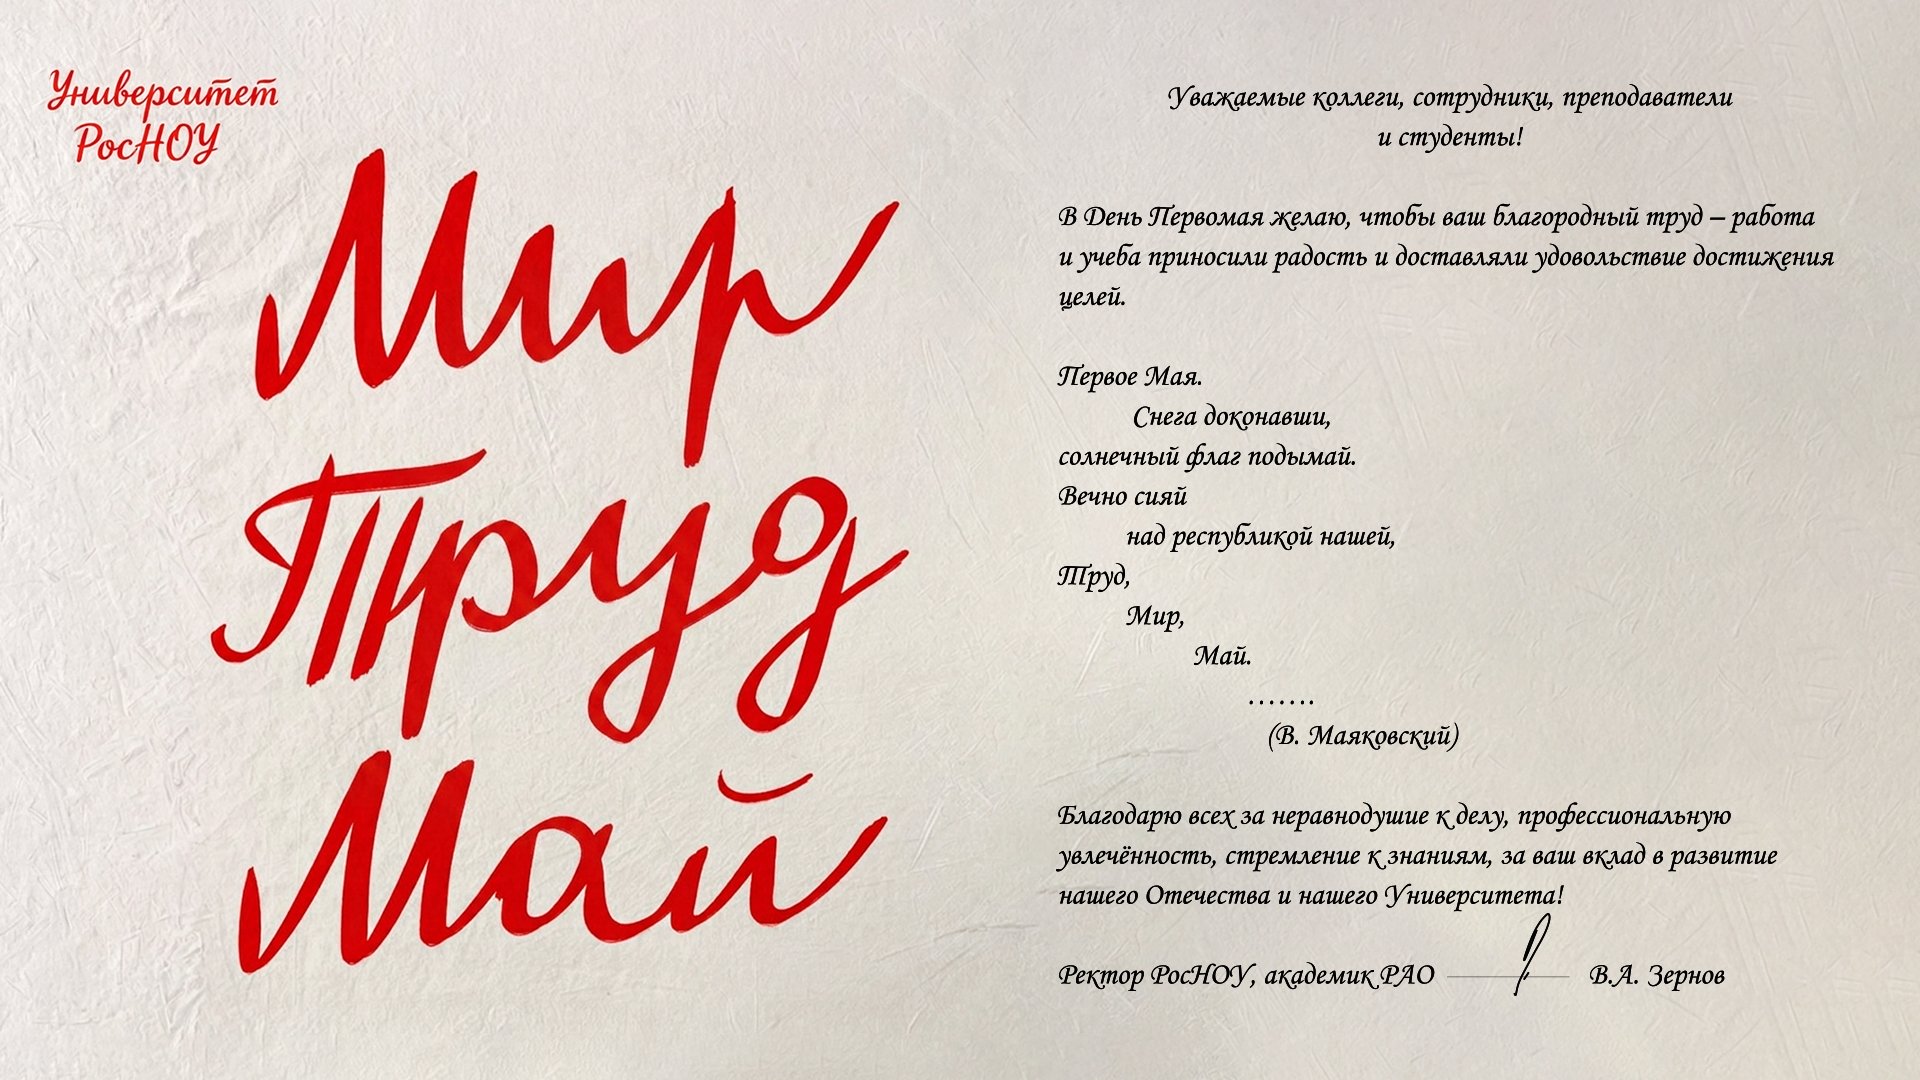 Университет
РосНОУ
Мир
Труд
Май
Уважаемые коллеги, сотрудники, преподаватели
и студенты!
В День Первомая желаю, чтобы ваш благородный труд – работа
и учеба приносили радость и доставляли удовольствие достижения
целей.
Первое Мая.
Снега доконавши,
солнечный флаг подымай.
Вечно сияй
над республикой нашей,
Труд,
Мир,
Май.
.......
(В. Маяковский)
Благодарю всех за неравнодушие к делу, профессиональную
увлечённость, стремление к знаниям, за ваш вклад в развитие
нашего Отечества и нашего Университета!
Ректор РосНОУ, академик РАО В.А. Зернов